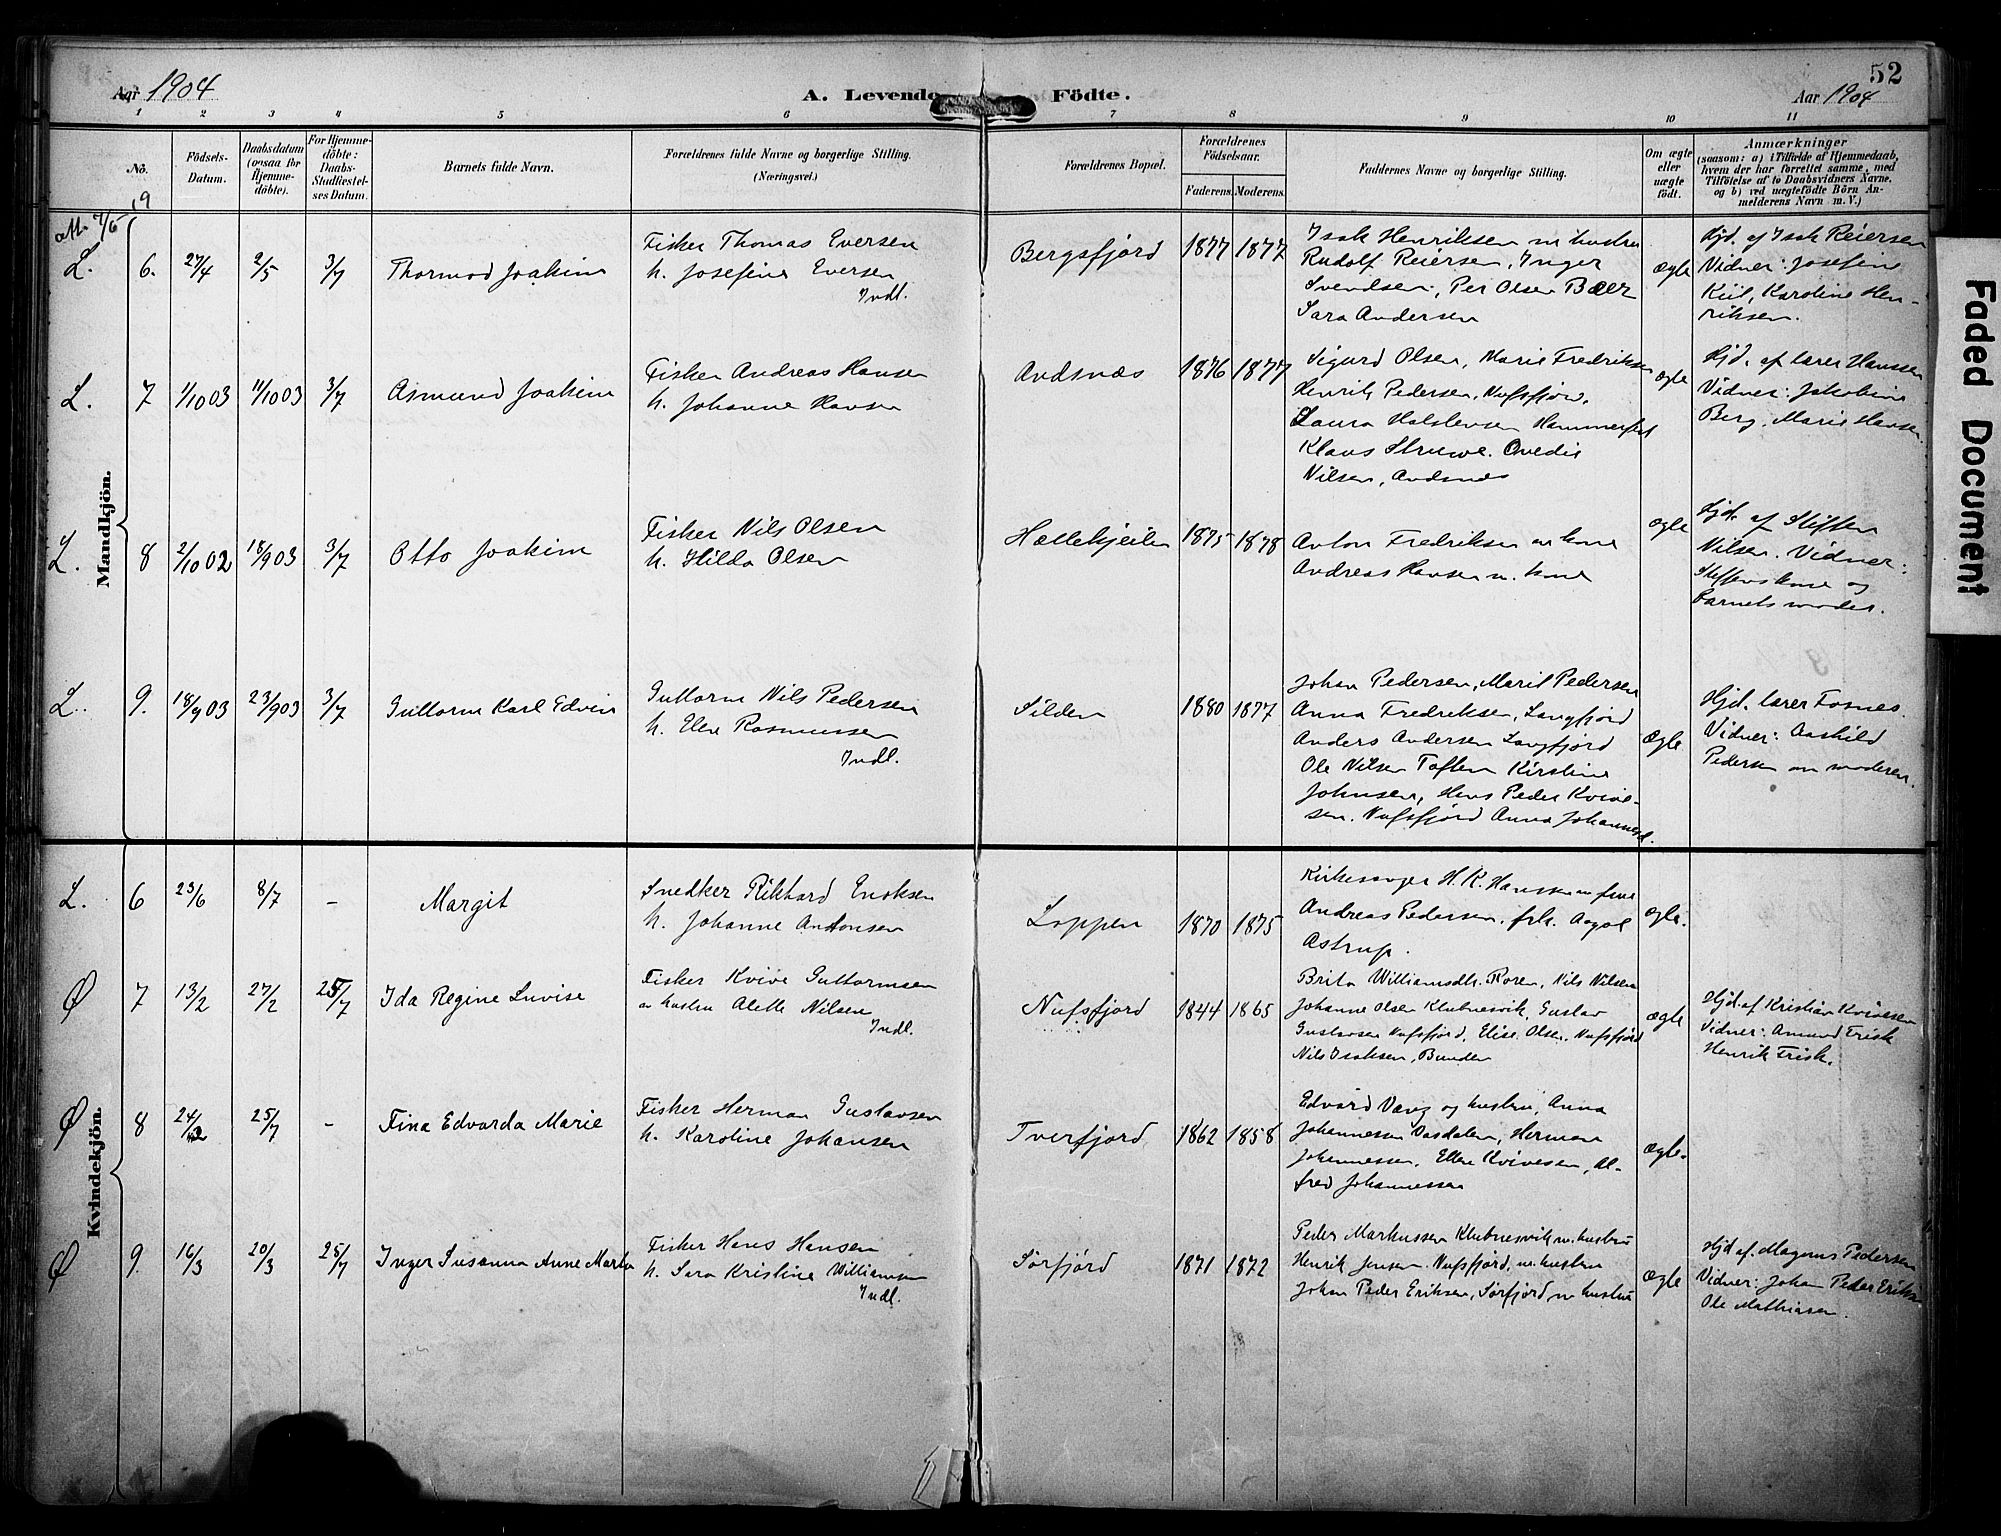 52
Aar 1904
A. Levende Födte.
Aar 1904
1 2 3 4 5 6 7 8 9 10 11
No.
Födsels-
Datum.
Daabsdatum
(ogsaa for
Hjemme-
döbte).
For Hjemme-
döbte:
Daabs-
Stadfæstel-
ses Datum.
Barnets fulde Navn.
Forældrenes fulde Navne og borgerlige Stilling.
(Næringsvei.)
Forældrenes Bopæl.
Forældrenes
Födselsaar.
Faderens. Moderens.
Faddernes Navne og borgerlige Stilling.
Om ægte
eller
uægte
födt.
Anmærkninger
(saasom: a) i Tilfælde af Hjemmedaab,
hvem der har forrettet samme, med
Tilföielse af to Daabsvidners Navne,
og b) ved uægtefödte Börn An-
melderens Navn m. V.)
19
att. 7/5
Mandkjön.
L. 6. 27/4 2/5 3/7 Thormod Joakim
Fisker Thomas Eversen
h. Josefine Eversen
Indl.
Bergsfjord 1877 1877
Isak Henriksen m hustru
Rudolf Reiersen, Inger
Svendsen, Per Olsen Baer
Sara Andersen
Ægte
Hjd. af Isak Reiersen
Vidner: Josefine
Kiil, Karoline Hen-
riksen.
L. 7 1/10 03 11/10 03 3/7 Asmund Joakim
Fisker Andreas Hansen
h. Johanne Hansen
Andsnæs 1876 1877
Sigurd Olsen, Marie Fredriksen
Henrik Pedersen, Nufsfjord,
Laura Halstensen Hammerfest
Klaus Struwe. Ovedie
Nilsen, Andsnæs
ægte
Hjd. af lærer Hanssen
Vidner: Jakobine
Berg, Marie Hansen
L. 8 2/10 02 18/9 03 3/7 Otto Joakim
Fisker Nils Olsen
h. Hilda Olsen
Hellekjeilen 1875 1878
Anton Fredriksen m kone
Andreas Hansen m. kone
ægte
Hjd. af Steffen
Nilsen. Vidner:
Steffens kone og
barnets moder.
L. 9. 18/9 03 23/9 03 3/7 Guttorm Karl Edvin
Guttorm Nils Pedersen
h. Elen Rasmussen
Indl.
Silden 1880 1877
Johan Pedersen, Marit Pedersen
Anna Fredriksen, Langfjord
Anders Andersen Langfjord
Ole Nilsen Toften Kirstine
Johnsen, Hans Peder Kvive-
sen. Nufsfjord Anna Johannesd.
Ægte
Hjd. lærer Fosnes.
Vidner: Aashild
Pedersen m moderen.
Kvindekjön.
L. 6 23/6 8/7 - Margit
Snedker Rikhard Enoksen
h. Johanne Antonsen
Loppen 1870 1875
Kirkesanger H. K. Hanssen m frue
Andreas Pedersen, frk. Aagot
Astrup.
ægte.
Ø 7 13/2 27/2 25/7 Ida Regine Luvise
Fisker Kvive Guttormsen
m hustru Alette Nilsen
Indl.
Nufsfjord 1844 1865
Brita Williamsdtr. Roren, Nils Nilsen
Johanne Olsen Klubnesvik, Gustav
Gustavsen Nufsfjord, Elise Olsen, Nufsfjord
Nils Isaksen, Bunden
ægte
Hjd. af Kristian Kvivesen
Vidner: Amund Frisk
Henrik Frisk.
Ø 8 24/2 25/7 - Fina Edvarda Marie
Fisker Herman Gustavsen
h. Karoline Johansen
Tverfjord 1862 1858
Edvard Vang og hustru, Anna
Johannessen Vasdalen, Herman
Johannessen, Ellen Kvivesen, Al-
fred Johannessen
Ægte.
Ø 9. 16/3 20/3 25/7 Inger Susanna Anne Marta
Fisker Hans Hansen
h. Sara Kristine Williamsen
Indl.
Sørfjord 1871 1872
Peder Markussen Klubnesvik m. hustru
Henrik Jensen. Nufsfjord, m. hustru
Johan Peder Eriksen, Sørfjord m hustru
Ægte
Hjd af. Magnus Pedersen
Vidner: Johan Peder Eriksen
Ole Mathiasen.
Faded Document